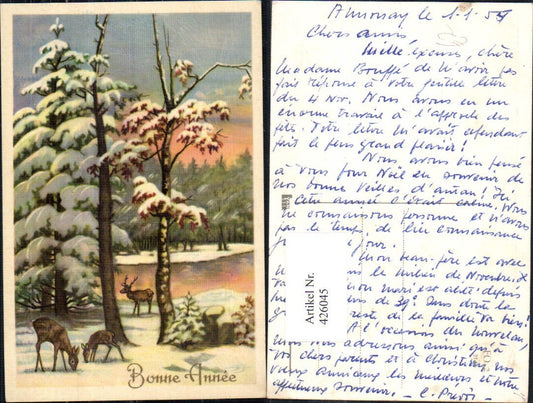 Bonne Année
Annonay le 1.1.54
Chers amis,
Mille excuses, chère
Madame Bouffé de n'avoir pas
fait réponse à votre gentille lettre
du 4 Nov. Nous avons eu un
énorme travail à l'approche des
fêtes. Votre lettre m'avait cependant
fait le plus grand plaisir!
Nous avons bien pensé
à vous pour Noël en souvenir de
nos bonnes veilles d'antan! Ici
cette année c'était calme. Nous
ne connaissons personne et n'avons
pas le temps, de lier connaissance
pour.
mon beau-père est avec
le milieu de Novembre.
mon mari est alité depuis
de 39°. Sans doute la
reste de la famille va bien!
A l'occasion du nouvel an,
nous vous adressons ainsi qu'à
vos chers parents et à Christiane nos
voeux amicaux les meilleurs et notre
affectueux souvenir. - C. Prévôt
Artikel Nr.
426045